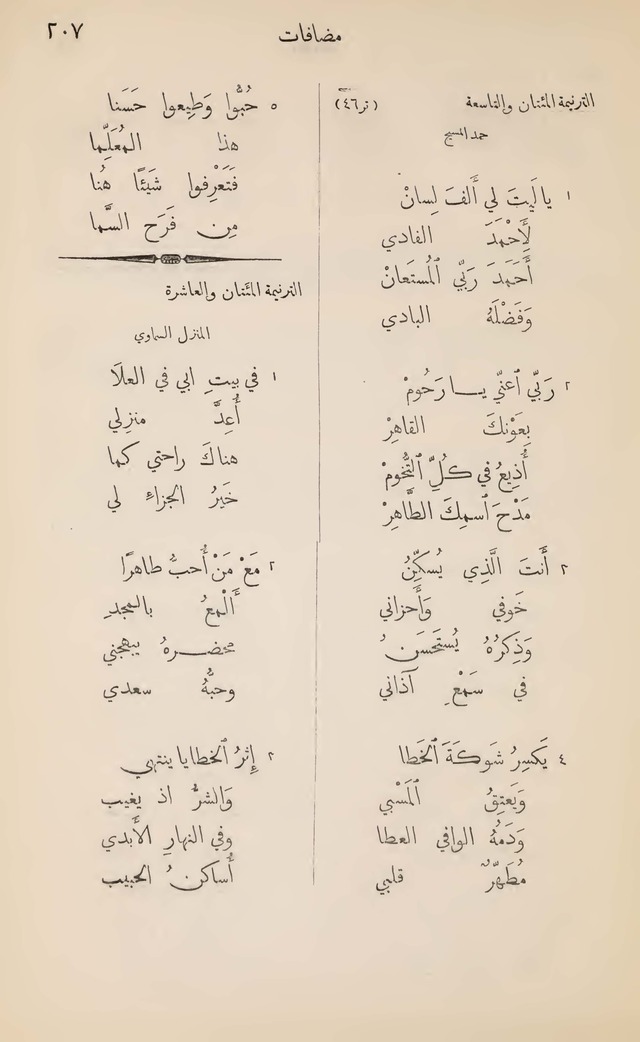 مضافات ٢٠٧
الترنيمة المئتان والتاسعة (تر ٤٦)
حمد المسيح
١ يا لَيتَ لي أَلفَ لِسانْ
لِأَحْمَدَ الفادي
أَحمَدَ رَبِّي ٱلمُستَعانْ
وَفَضْلَهُ البادي
٢ رَبِّي ٱعنِّي يا رَحُومْ
بِعَوْنكَ القاهِرْ
أُذيعُ في كُلِّ ٱلتُّخُومْ
مَدْحَ ٱسمِكَ الطَّاهِرْ
٣ أَنتَ الَّذِي يُسكِّنُ
خَوفي وَأَحزاني
وَذِكرُهُ يُستَحسَنُ
في سَمْعِ آذاني
٤ يَكسِرُ شَوكَةَ ٱلخَطا
وَيَعتِقُ ٱلمَسْبِي
وَدَمُهُ الوافي العطا
مُطَهِّرٌ قلبي
٥ حُبُّوا وَطِيعوا حَسَنا
هذا المُعَلِّما
فَتَعْرِفوا شَيئًا هُنا
مِن فَرَحِ السَّما
الترنيمة المئتان والعاشرة
المنزل السماوي
١ في بيتِ ابي في العلَا
أُعِدَّ منزِلي
هناكَ راحتي كما
خَيرُ الجزاءِ لي
٢ مَعْ مَنْ أُحبُّ طاهرًا
أَلْمعُ بالمجدِ
محضرهُ يبهجني
وحبهُ سعدي
٣ إِثرُ ٱلخطايا ينتهي
وَالشرُّ اذ يغيب
وفي النهارِ الأَبدي
أُساكنُ الحبيب